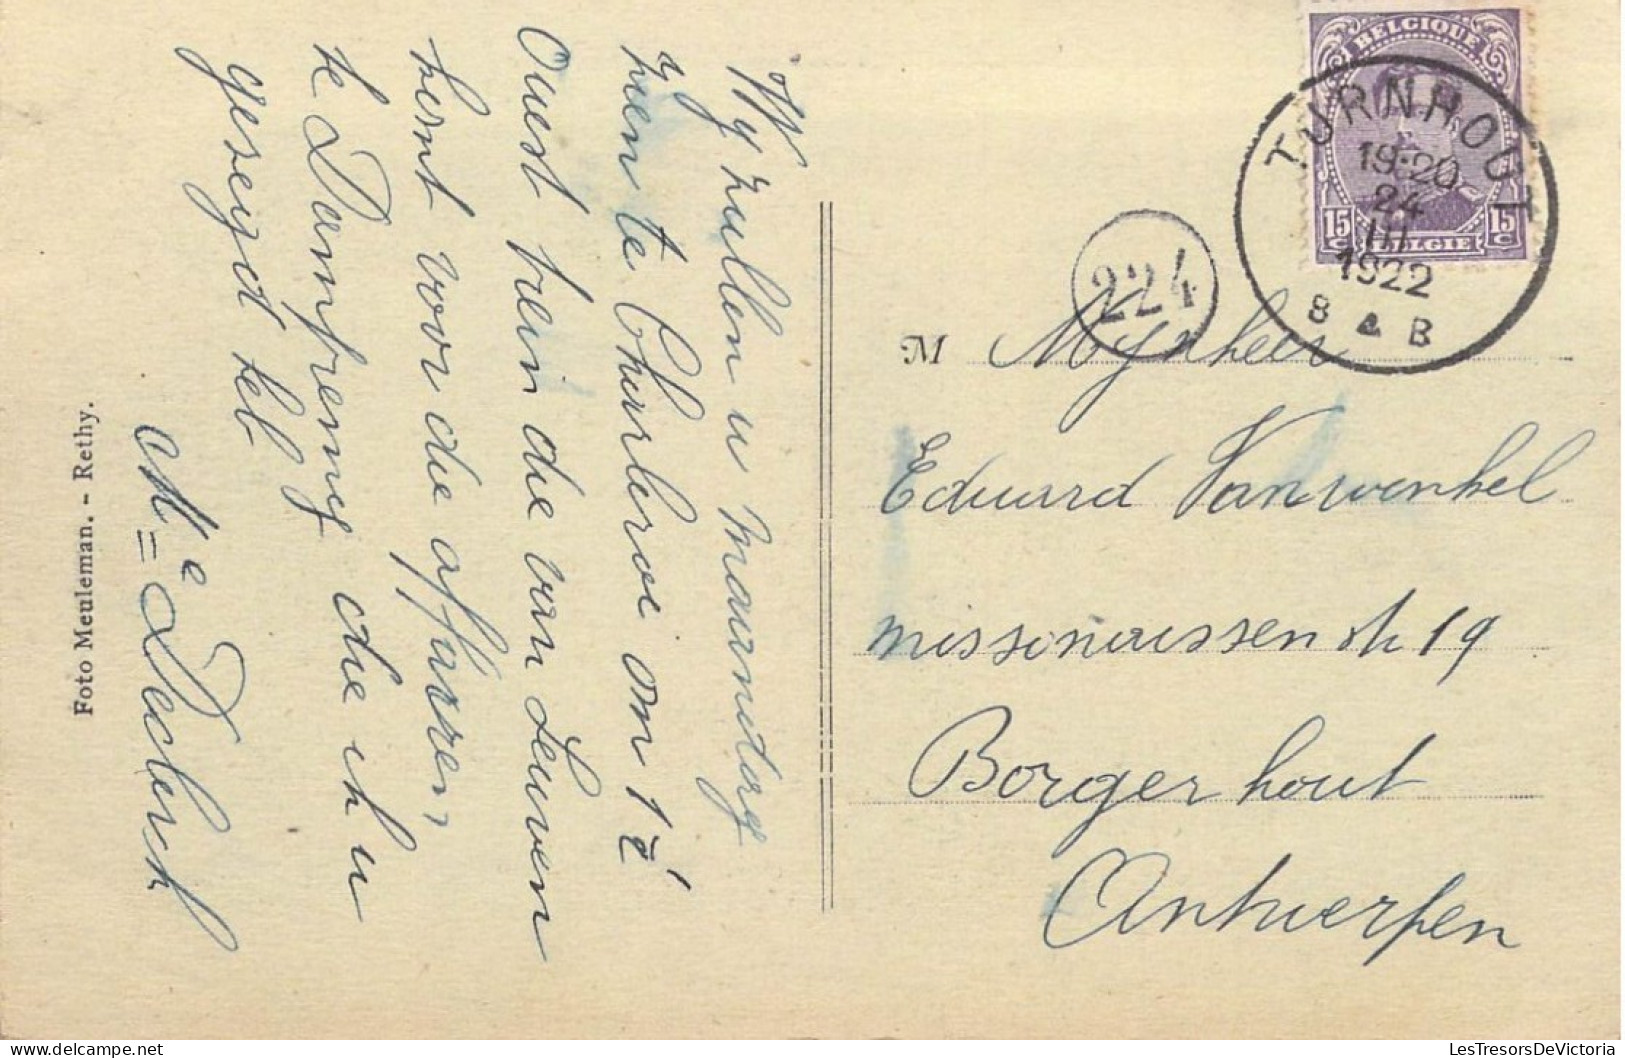 Wy zullen u maandag
zien te Charleroi om 1
Ouest trein die van Leuven
komt voor die affairen,
te Dampremy die ik u
gezegd heb
Me Declerck
Foto Meuleman. - Rethy.
BELGIQUE
15 c BELGIE 15 c
TURNHOUT
19:20
24
III
1922
B B
224
M Mynheer
Eduard Vanwinkel
missionarissen str 19
Borgerhout
Antwerpen
LesTresorsDeVictoria